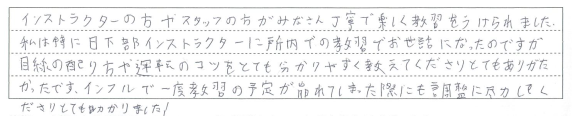 インストラクターの方やスタッフの方がみなさん丁寧で楽しく教習をうけられました。
私は特に日下部インストラクターに所内での教習でお世話になったのですが
目線の配り方や運転のコツをとても分かりやすく教えてくださりとてもありがた
かったです。インフルで一度教習の予定が崩れてしまった際にも調整に尽力してく
ださりとても助かりました!